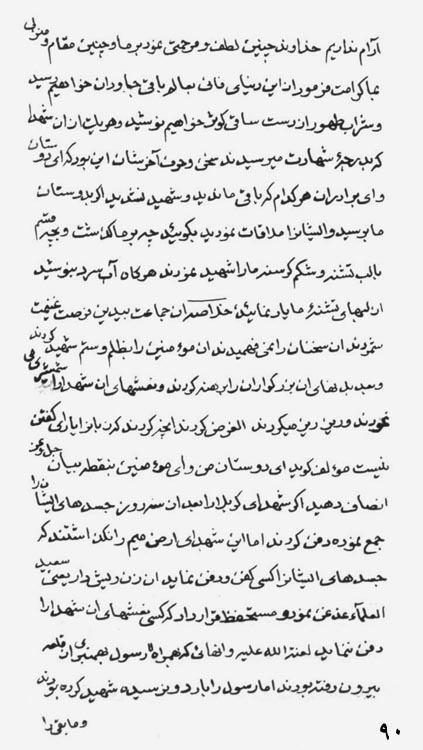 آرام نداریم خداوند چنین لطف و مرحمتی نمود بر ما و چنین مقام و منزلی
بما کرامت فرمود از این دنیای فانی بعالم باقی جاودان خواهیم رسید
و شراب طهور از دست ساقی کوثر خواهیم نوشید و هر یک از آن شهدا
که بدرجهٔ شهادت میرسیدند سخن و حرف آخرشان این بود که ای دوستان
و ای برادران هر کدام که باقی ماندید و شهید نشدید اگر بدوستان
ما برسید و ایشانرا ملاقات نمودید بگوئید چه بر ما گذشت و بچه قسم
با لب تشنه و شکم گرسنه ما را شهید نمودند هرگاه آب سرد بنوشید
از لبهای تشنهٔ ما یاد نمائید خلاصه آن جماعت بیدین فرصت غنیمت
شمردند آن سخنان را نمی فهمیدند آن مؤمنین را بظلم و ستم شهید کردند
و بدنهای آن بزرگواران را برهنه کردند و نعشهای آن شهدا را
نمودند و ریز ریز میکردند الغرض کردند آنچه کردند که زبانرا یارای گفتن
نیست مؤلف گوید ای دوستان من و ای مؤمنین بنقطه بیان جل و عز
انصاف دهید اگر شهدای کربلا را بعد از سه روز جسدهای ایشان را
جمع نموده دفن کردند اما این شهدای ارض میم را نگذاشتند که
جسدهای ایشانرا کسی کفن و دفن نماید آن زن ریش دار یعنی سعید
العلماء غدغن نمود و مستحفظ قرار داد که کسی نعشهای آن شهدا را
دفن ننماید لعنة الله علیه و آنهائی که همراه رسول بهنمیری از قلعه
بیرون رفته بودند اما رسول را باردو نرسیده شهید کرده بودند
و مابقی را
۹۰